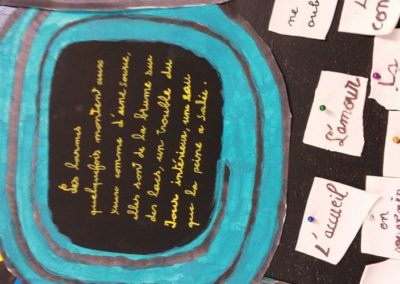 Les larmes
quelquefois montent aux
yeux comme d'une source,
elles sont de la brume sur
des lacs, un trouble du
Jour intérieur, une eau
que la peine a salée.
L'accueil
L'amour
ne
oub
con
en